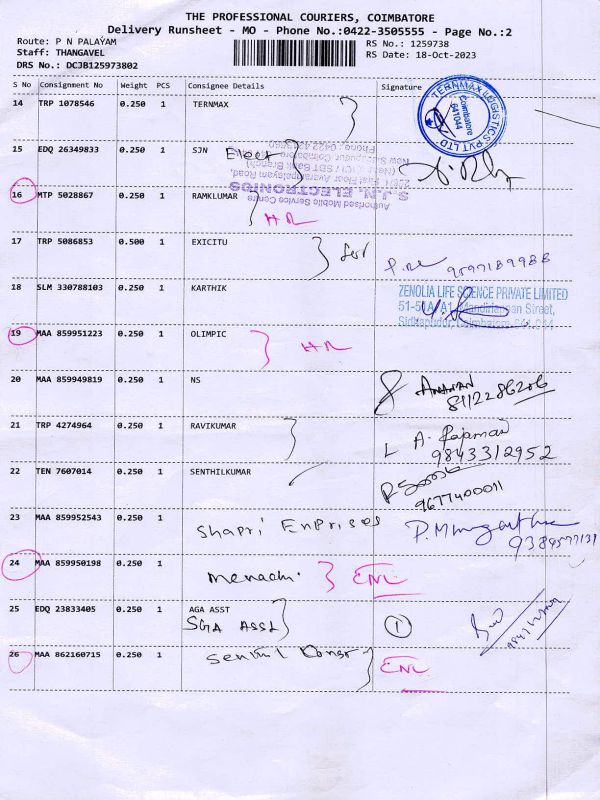 THE PROFESSIONAL COURIERS, COIMBATORE
Delivery Runsheet - MO - Phone No.:0422-3505555 - Page No.:2
Route: P N PALAYAM RS No.: 1259738
Staff: THANGAVEL RS Date: 18-Oct-2023
DRS No.: DCJB125973802
S No Consignment No Weight PCS Consignee Details Signature
TERNMAX LOGISTICS PVT LTD
Coimbatore
641044
14 TRP 1078546 0.250 1 TERNMAX
15 EDQ 26349833 0.250 1 SJN Elect
S.J.N. ELECTRONICS
Authorised Mobile Service Centre
16 MTP 5028867 0.250 1 RAMKLUMAR
HR
17 TRP 5086853 0.500 1 EXICITU
9597189988
18 SLM 330788103 0.250 1 KARTHIK
ZENOLIA LIFE SCIENCE PRIVATE LIMITED
51-51A/A1, Mandiriappan Street,
Sidhapudur, Coimbatore 641 044
19 MAA 859951223 0.250 1 OLIMPIC HR
20 MAA 859949819 0.250 1 NS
21 TRP 4274964 0.250 1 RAVIKUMAR
A. Rajamani
9843312952
22 TEN 7607014 0.250 1 SENTHILKUMAR
9677400011
23 MAA 859952543 0.250 1 Shapri Enprises
9384577131
24 MAA 859950198 0.250 1 Menachi ENL
25 EDQ 23833405 0.250 1 AGA ASST
SGA ASSt 1
26 MAA 862160715 0.250 1 Senthil Const ENL